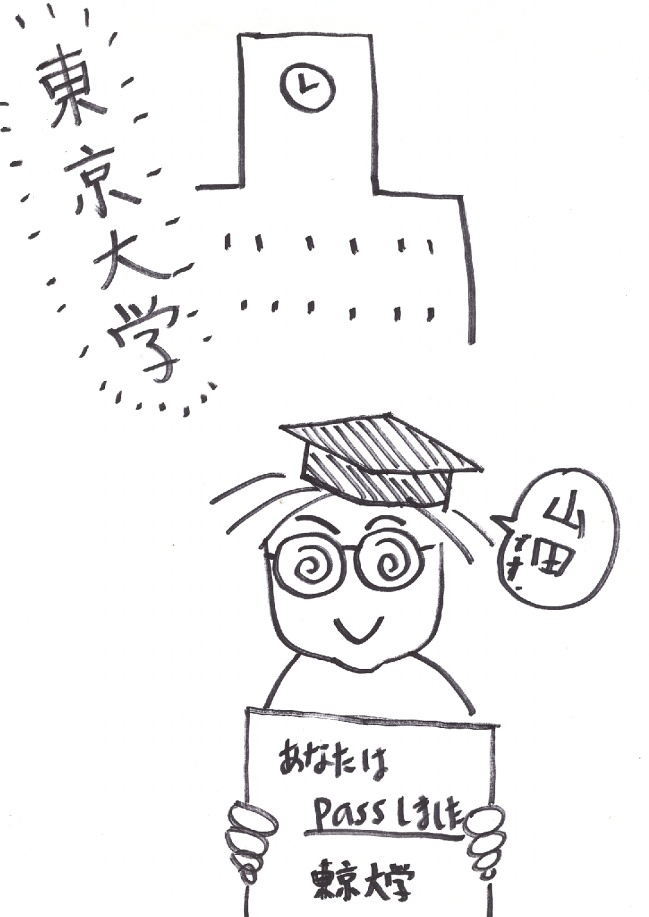 東京大学
山田
あなたは
passしました
東京大学